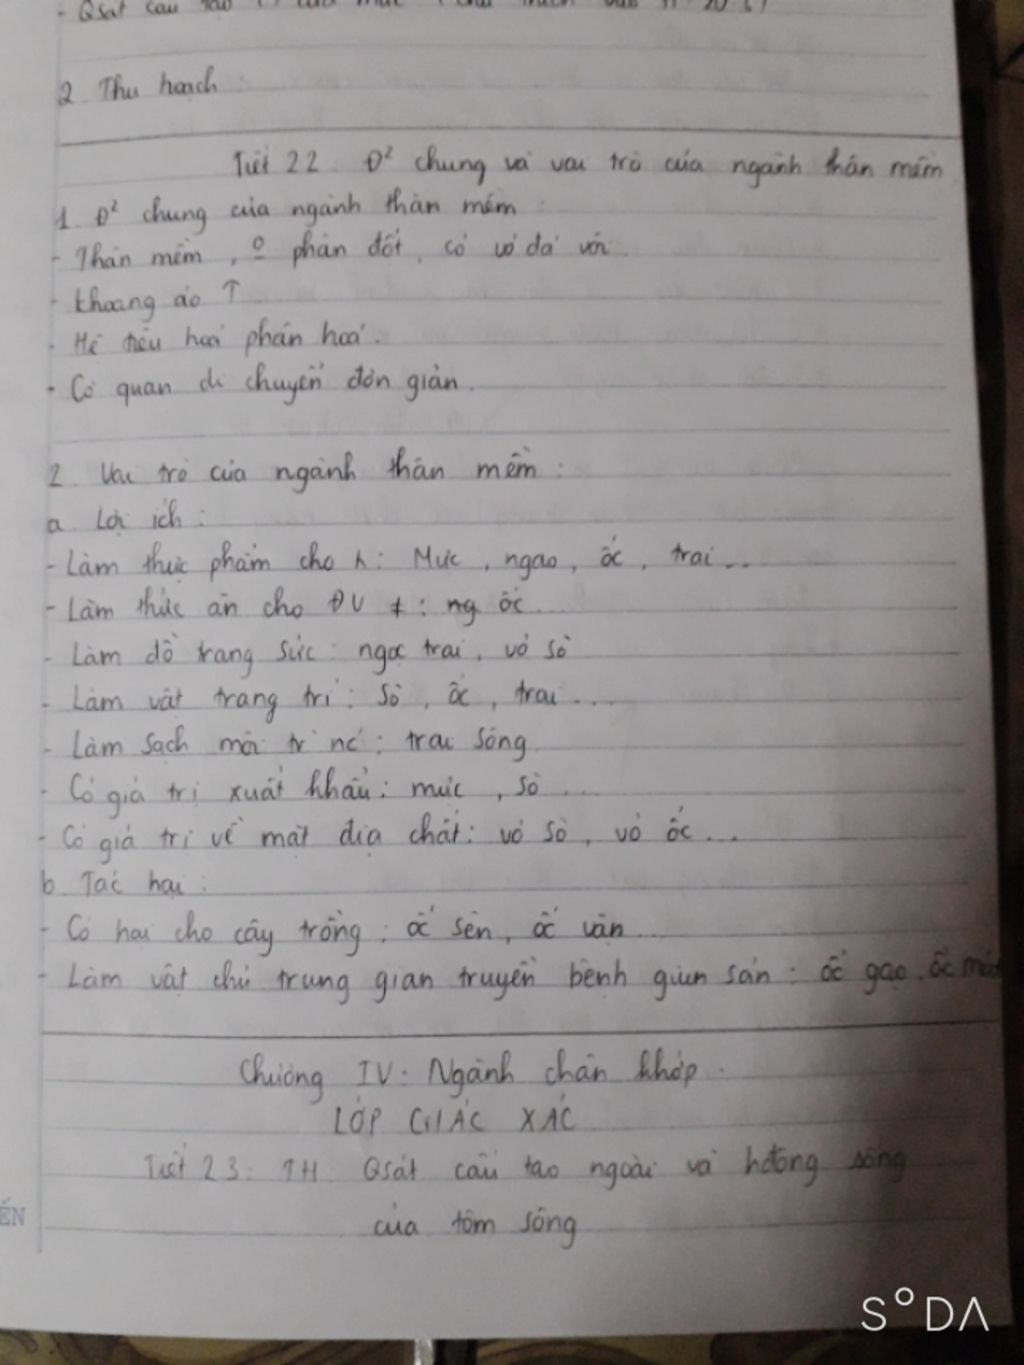 - Qsát cấu tạo
2. Thu hoạch :
Tiết 22. Đ² chung và vai trò của ngành thân mềm
1. Đ² chung của ngành thân mềm :
- Thân mềm, o phân đốt, có vỏ đá vôi.
- Khoang áo ↑
- Hệ tiêu hoá phân hoá.
- Cơ quan di chuyển đơn giản.
2. Vai trò của ngành thân mềm :
a. Lợi ích :
- Làm thực phẩm cho : Mực, ngao, ốc, trai...
- Làm thức ăn cho ĐV ≠ : ng ốc.
- Làm đồ trang sức : ngọc trai, vỏ sò
- Làm vật trang trí : Sò, ốc, trai...
- Làm sạch môi tr nc : trai sông
- Có giá trị xuất khẩu : mực, sò...
- Có giá trị về mặt địa chất : vỏ sò, vỏ ốc...
b. Tác hại :
- Có hại cho cây trồng : ốc sên, ốc vặn
- Làm vật chủ trung gian truyền bệnh giun sán : ốc gạo, ốc mút
Chương IV. Ngành chân khớp.
LỚP GIÁC XÁC
Tiết 23 : TH Qsát cấu tạo ngoài và hđộng sống
của tôm sông
ẾN
S°DA